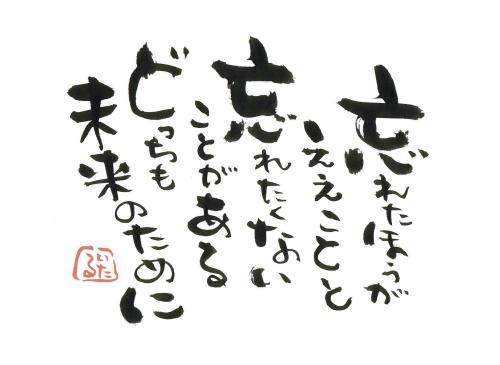 忘れたほうが
ええことと
忘れたくない
ことがある
どっちも
未来のために
いたる